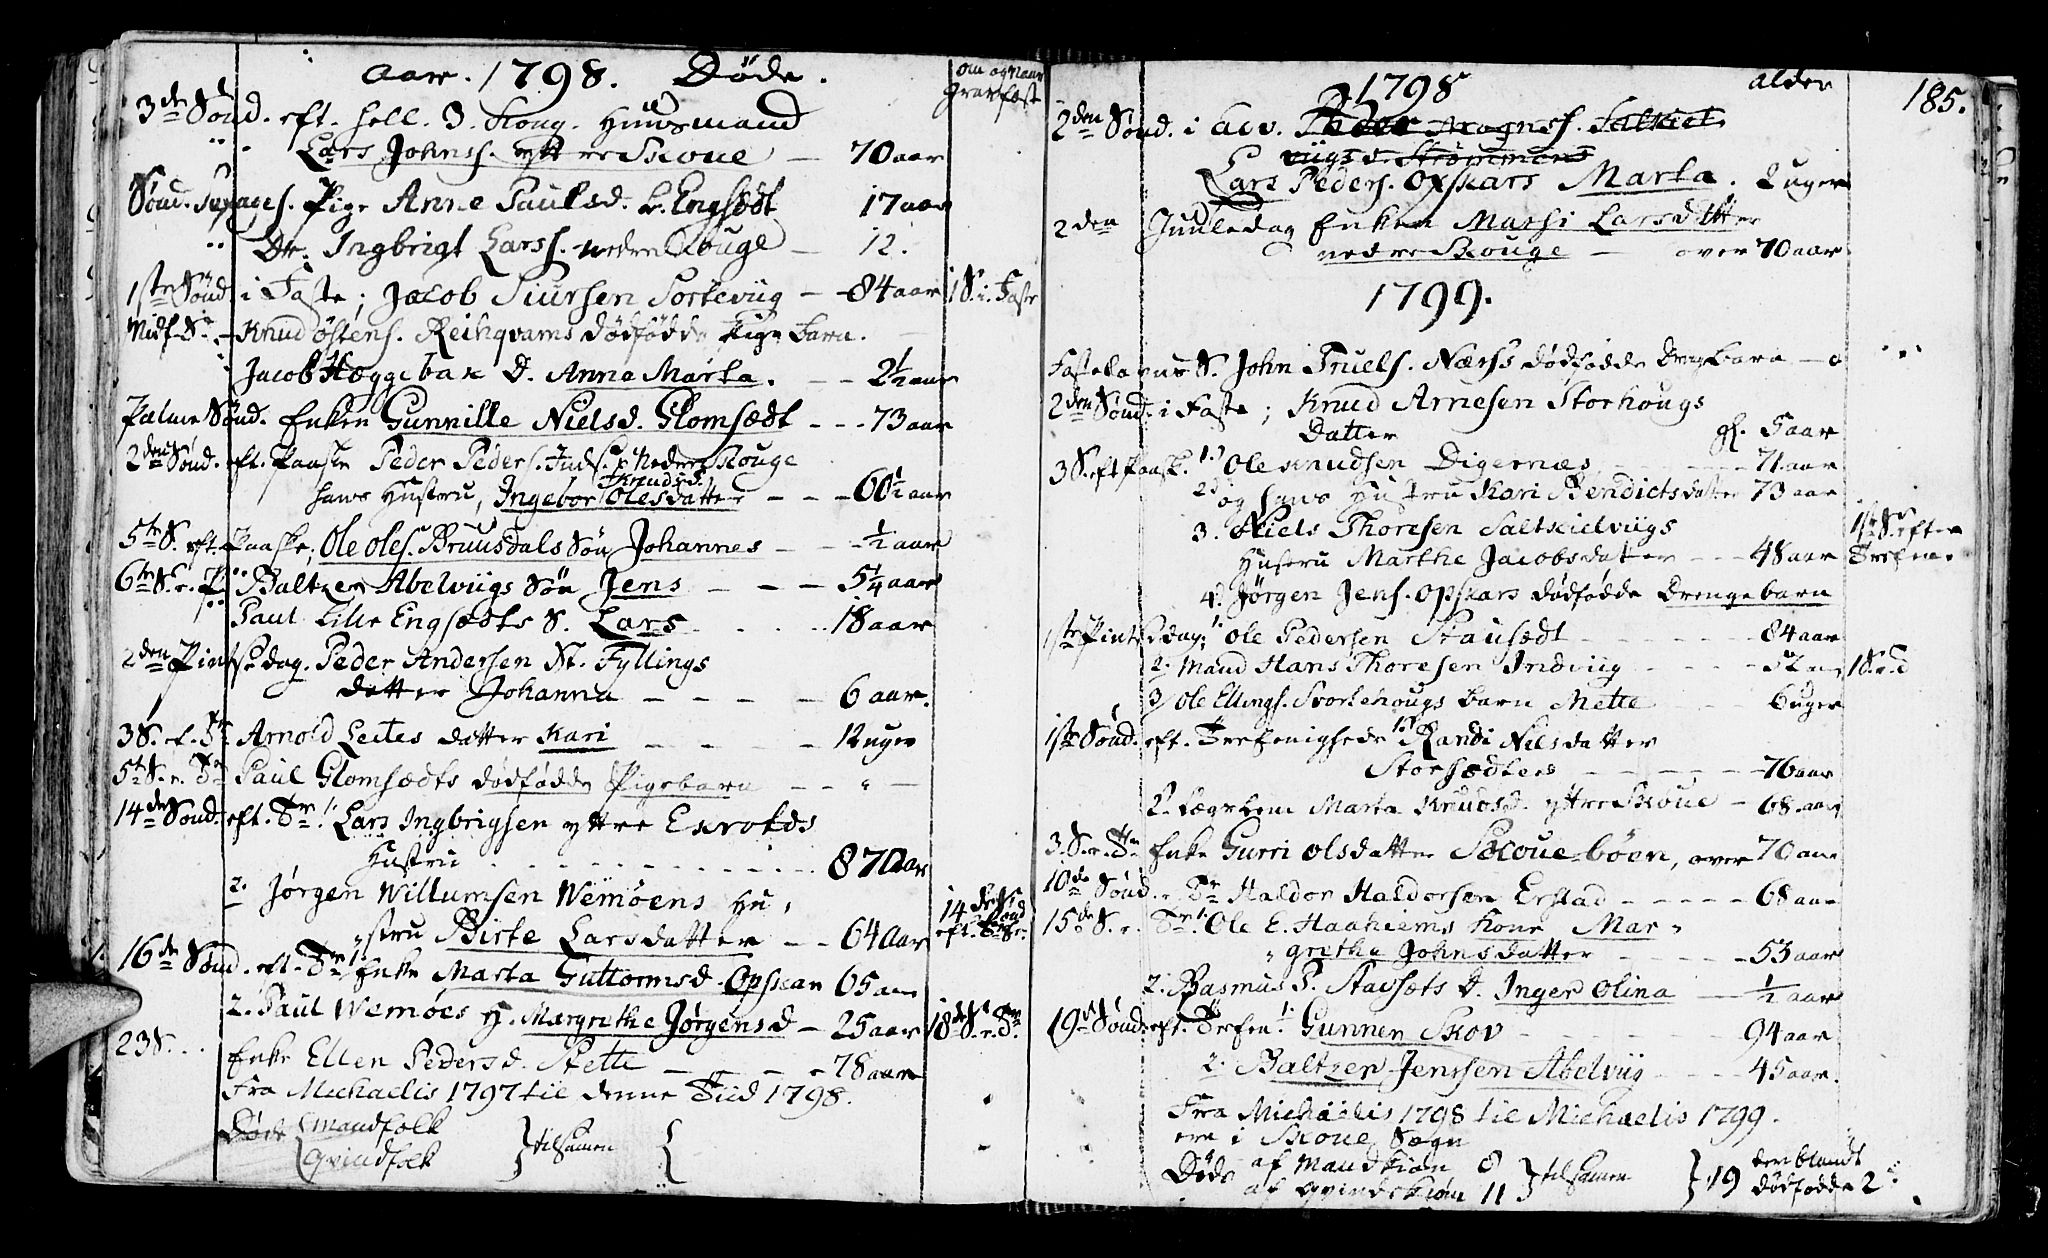 Aar. 1798. Døde.
om og naar
Gravfæst
3de Sønd. eft. hell. 3. Kong. Huusmand
Lars Johnss. yttre Skoue — 70 aar
Sønd. Sexages. Pige Anne Paulsd. L. Engsædt 17 aar
Dr. Ingbrigt Larss. nedre Skouge — 12.
1ste Sønd i Faste; Jacob Siursen Sortevüg — 84 aar 1 S. i. Faste
Midf. S. — Knud Østens. Reihqvams dødfødde Pige Barn.
Jacob Hæggebak D. Anne Marta. — 2½ aar
Palme Sønd. Enken Gunnille Nielsd. Glomsædt — 73 aar
2den Sønd. eft. Paaske Peder Peders. Inds. p. Nedre Skouge
hans Hustru, Ingebor Olesdatter — 60½ aar
Knudsd.
5te S. eft. Paaske; Ole Oles. Bruusdals Søn Johannes — ½ aar
6te S. e. P. Baltzer Abelvügs Søn Jens — 5¼ aar
Paul Lille Engsædts S. Lars 18 aar
2den Pintsedag. Peder Andersen St. Fyllings
datter Johanna — 6 aar.
3 S. ef. Tr. Arnold Leites datter Kari — 12 uger
5te S. e. Tr. Paul Glomsædts dødfødde Pigebarn — " —
14de Sønd. eft. Tr. 1. Lars Ingbrigsen yttre Exrolds
Hustru 87 aar
2. Jørgen Willumsen Wemøens Hu,
"stru Birte Larsdatter — 64 aar 14 de Sønd eft. Tr.
16de Sønd. eft. Tr. 1. Enke Marta Guttormsd. Opskar 65 aar
2. Paul Wemøes H. Margrethe Jørgensd — 25 aar 18de S. e. Tr.
23 S. Enke Ellen Pedersd. Stette — 78 aar
Fra Michaelis 1797 til denne Tiid 1798.
Døde { mandfolk
Qvindfolk } tilsamen {
1798 alder 185.
2den Sønd. i Adv. Peder Mognss. Saltkiel
vügs d. Strømmens
Lars Peders. Opskars Marta. 2 uger
2den Juuledag Enken Marhi Larsdatter
nedre Skouge — over 70 aar
1799.
Fastelavns S. John Truels. Nærss dødfødde Drengebarn — 0
2den Sønd. i Faste; Knud Arnesen Storhougs
Datter gl. 5 aar
3 S. eft Paask. 1.) Ole Knudsen Digernæs — 71 aar
2) og hans Hustru Kari Bendictsdatter 73 aar
3. Niels Thoresen Saltkielvügs
Hustru Marthe Jacobsdatter — 48 aar 1ste S. efter Trefen.
4. Jørgen Jens. Opskars dødfødde Drengebarn
1ste Pintsedag; 1. Ole Pedersen Stausædt — 84 aar
2. Mand Hans Thoresen Indvüg — 52 aar 1 S. e d
3/ Ole Ellings. Svortehougs barn Mette — 6 uger
1ste Sønd. eft. Trefenighede 1.) Randi Nilsdatter
Storsædters — 76 aar
2. Lægslem Marta Knudsd. yttre Skoue — 68 aar
3. S. e. Tr. Enke Gurri Olsdatter Skoue-böen, over 70 aar
10de Sønd. e. Tr. Haldor Haldorsen Erstad — 68 aar
15de S. e. Tr. 1. Ole E. Haahiems Kone Mar"
"grethe Johnsdatter — 53 aar
2. Rasmus P. Stavsæts D. Inger Olina — ½ aar
19de Sønd. eft. Trefen. 1. Gunner Skov — 94 aar
2. Baltzer Jenssen Abelvüg — 45 aar.
Fra Michaelis 1798 til Michaelis 1799.
ere i Skoue Sogn
Døde af Mandkiøn 8
af Qvindekiøn 11 } tilsamen } 19 der blandt dødfødde 2